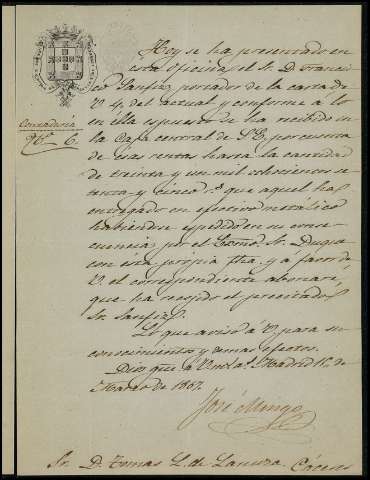 Hoy se ha presentado en
esta Oficina el Sr. D. Francis
co Sanfiz portador de la carta de
V. 4. del actual y conforme á lo
en ella espuesto se ha recibido en
la Caja central de S. E. por cuenta
de esas rentas hasta la cantidad
de treinta y un mil ochocientos se
tenta y cinco r.s que aquel ha
entregado en efectivo metálico
habiendose espedido en su conse
cuencia por el Escmo. Sr. Duque
con esta propia fha. y á favor de
V. el correspondiente abonaré,
que ha recojido el precitado
Sr. Sanfiz.
Lo que aviso á V. para su
conocimiento y demas efectos.
Dios gue. á V. m.s a.s Madrid
Marzo de 1867.
José Mengo
Contaduría
N.º 6.
Sr. D. Tomas L. de Lanuza. Cáceres